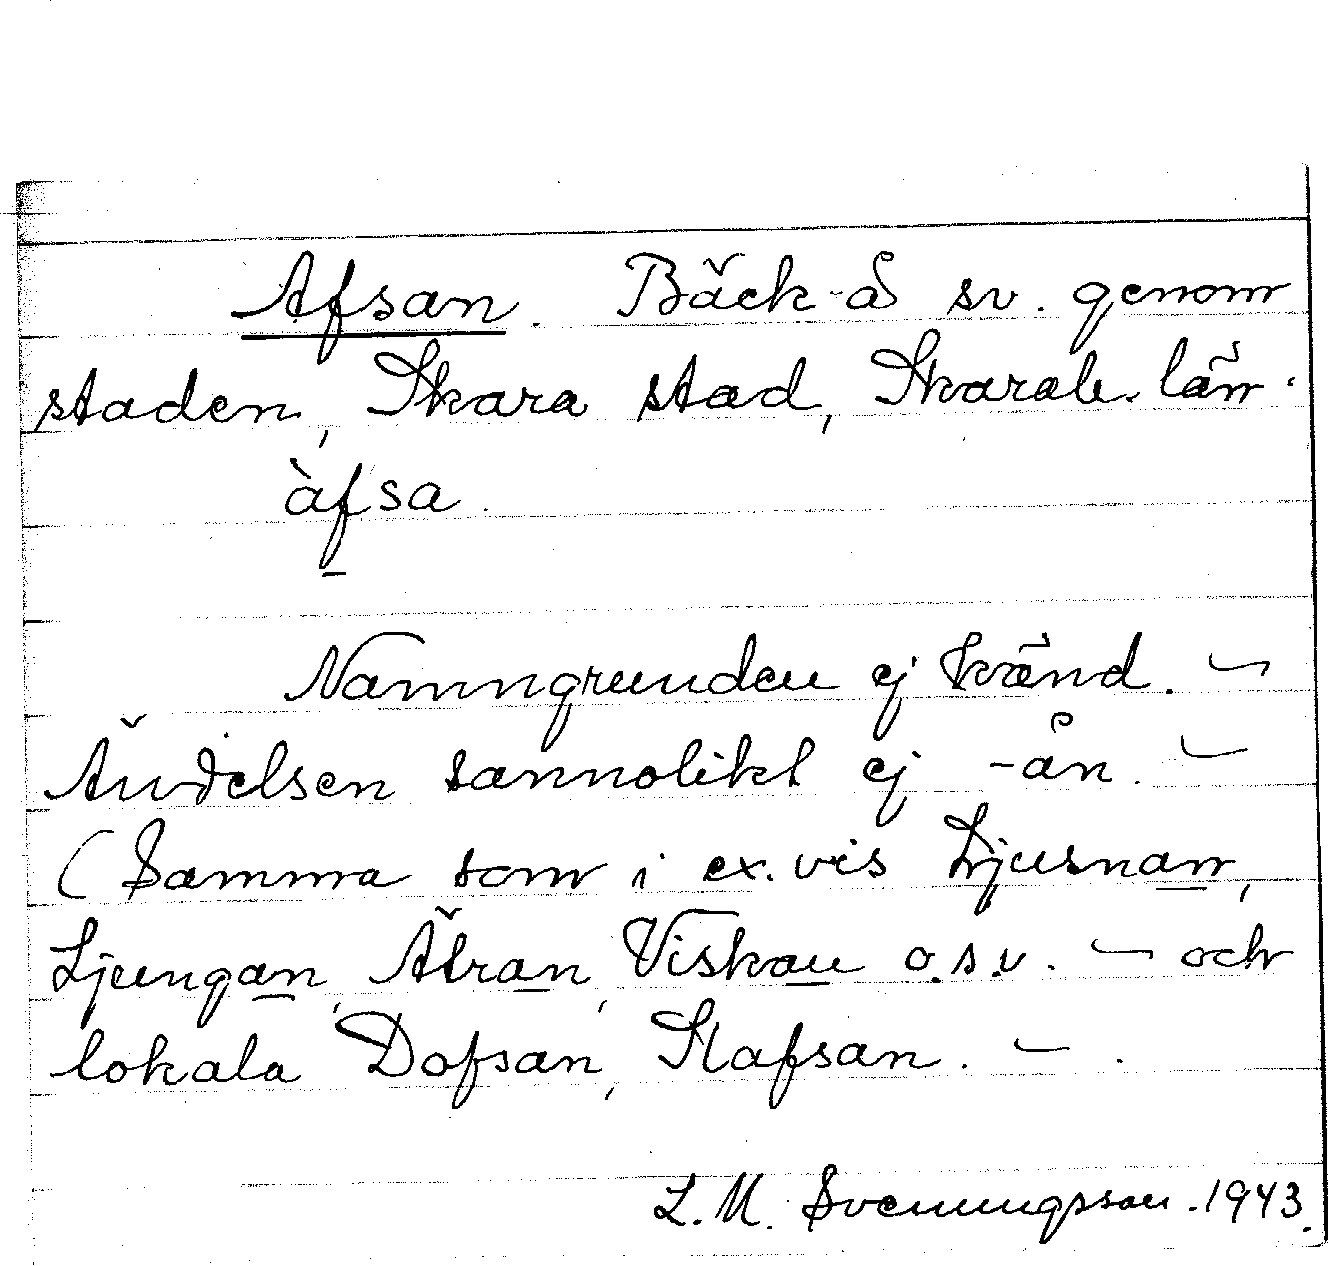 Afsan. Bäck-å sv. genom
staden, Skara stad, Skarab. län.
àfsa.
Namngrunden ej känd. –
Ändelsen sannolikt ej -ån. –
(Samma som i ex. vis Ljusnan,
Ljungan, Ätran, Viskan o.s.v. – och
lokala Dofsan, Slafsan. – .
L. M. Svenungsson. 1943.